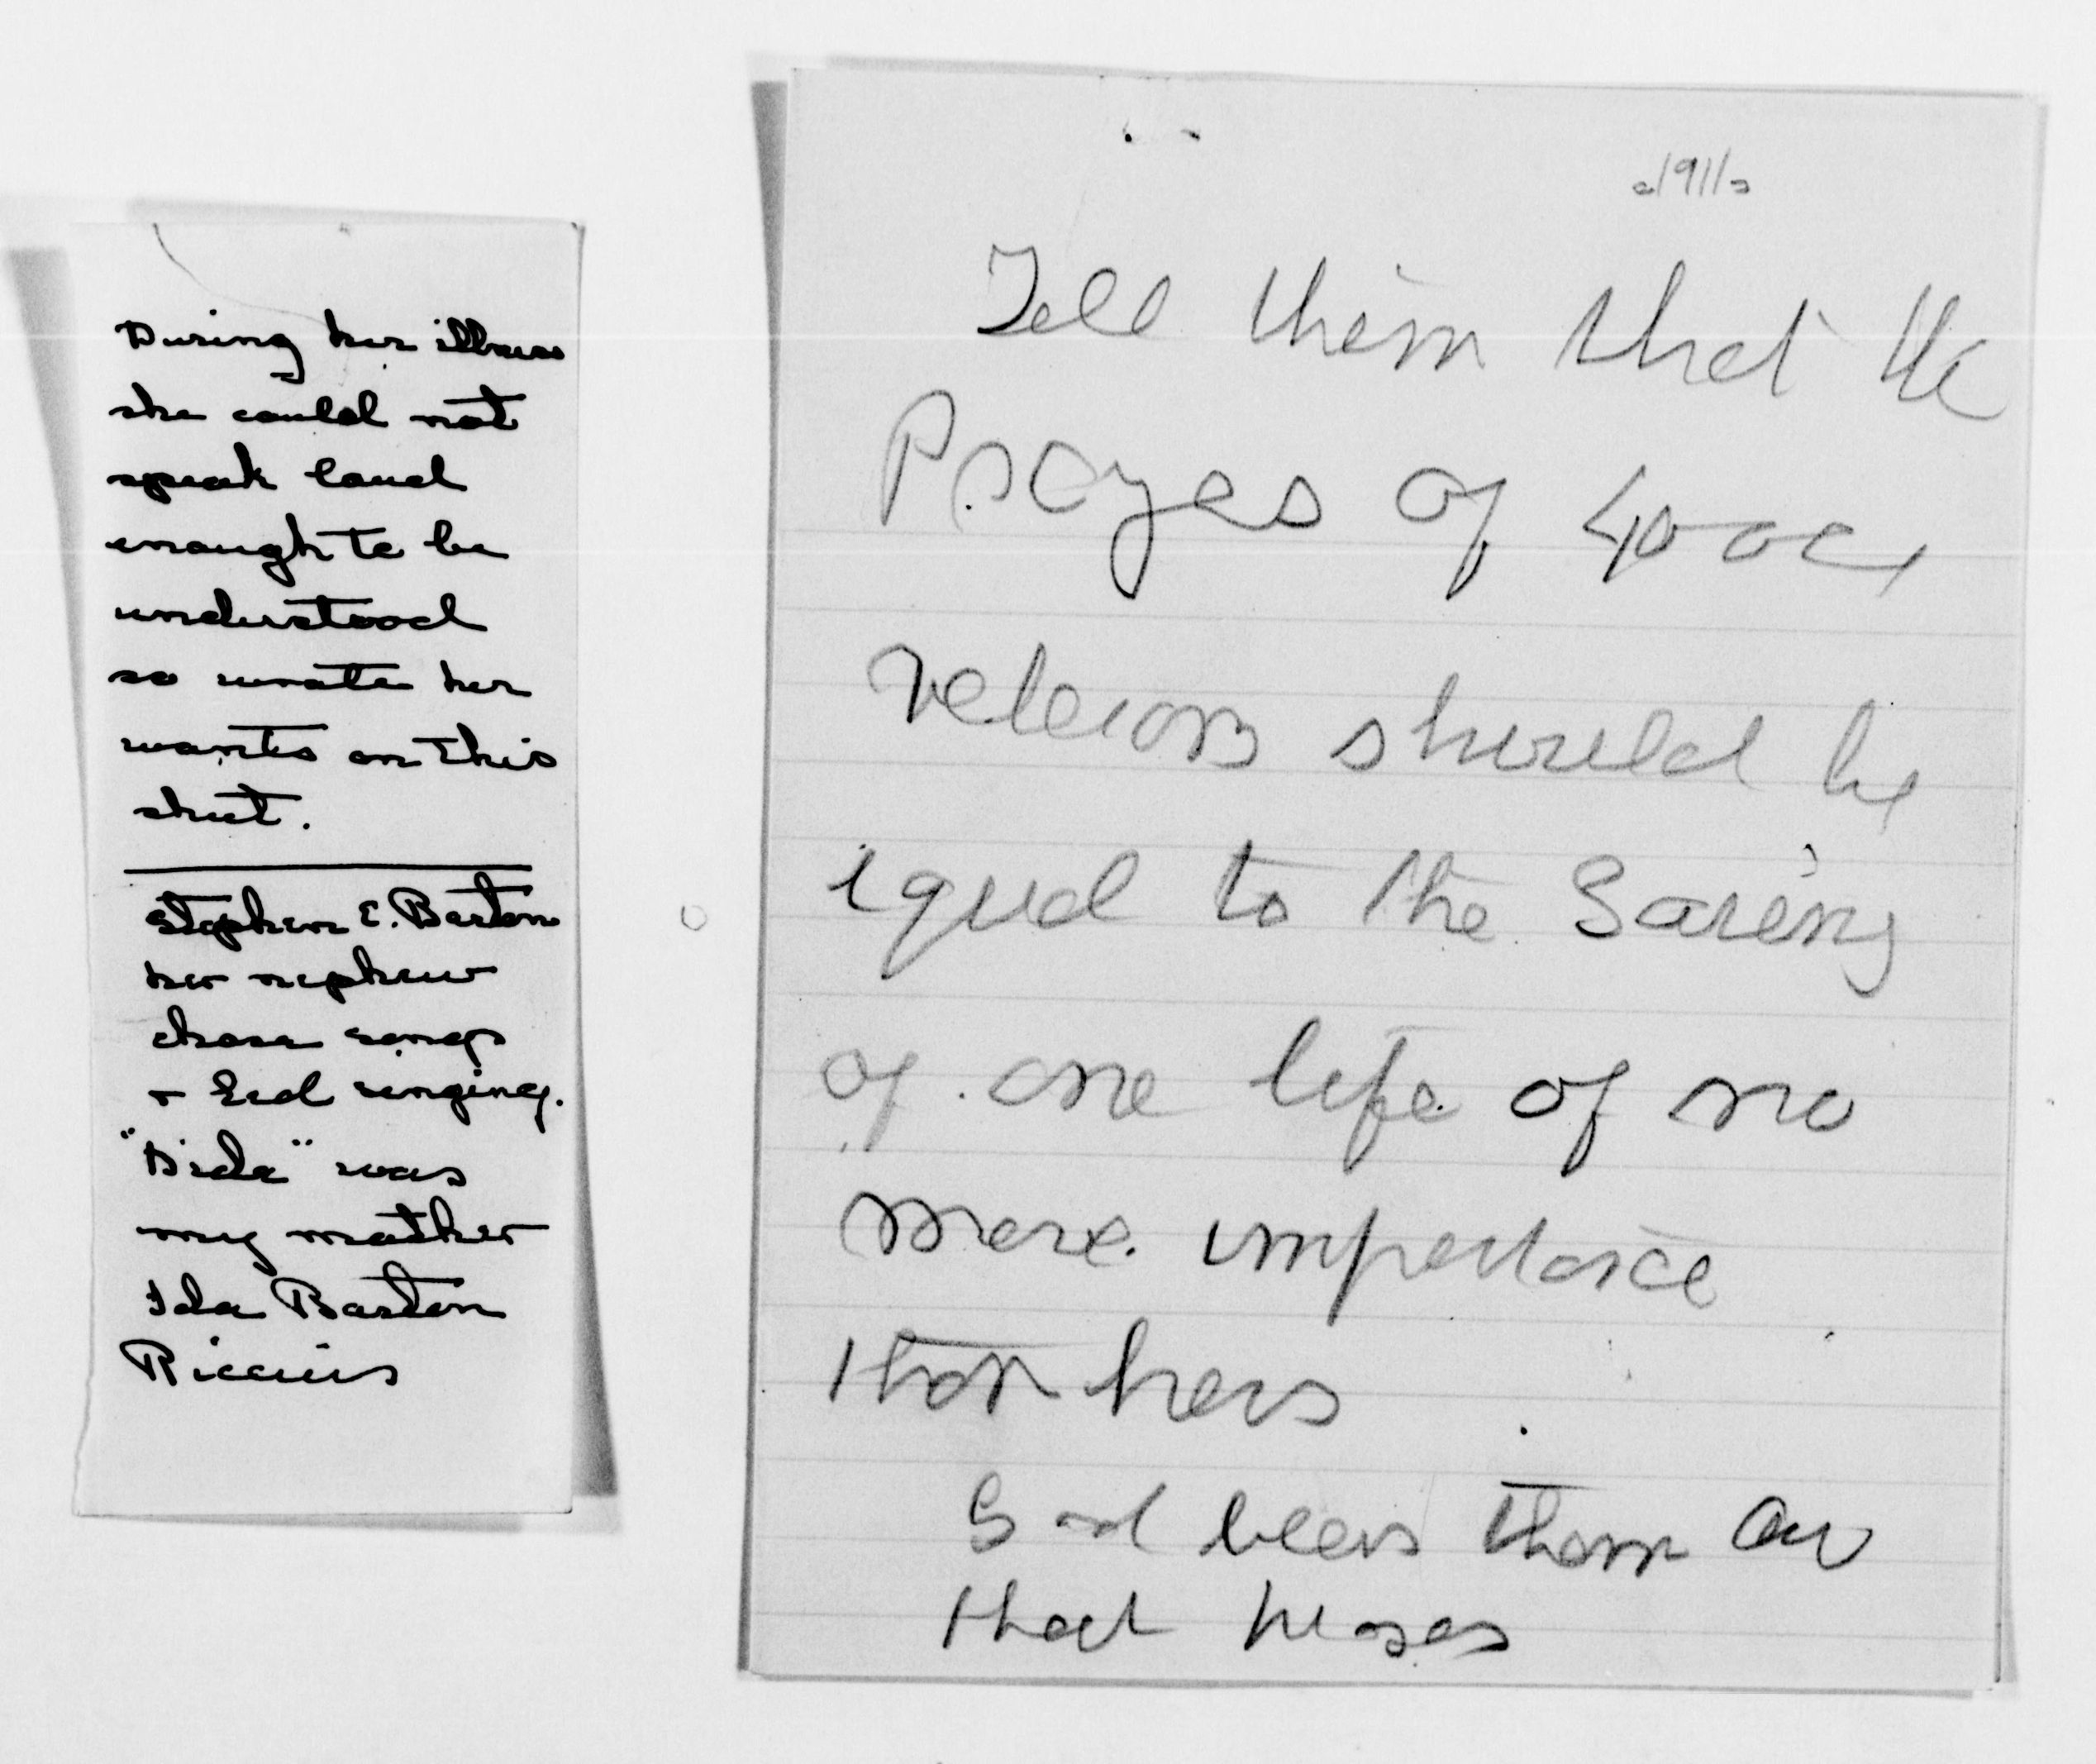 During her illness
she could not
speak loud
enough to be
understood
so wrote her
wants on this
sheet.
Stephen E. Barton
her nephew
chose songs
+ led singing.
"Dida" was
my mother
Ida Barton
Riccius
Tell them that the
Prayes of 4000
veterans should be
equal to the Saving
of one life of no
more importance
than hers
God bless them
that